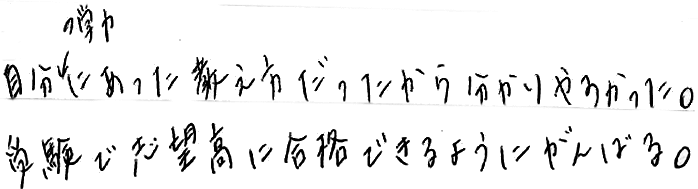 自分の学力にあった教え方だったから分かりやすかった。
受験で志望高に合格できるようにがんばる。